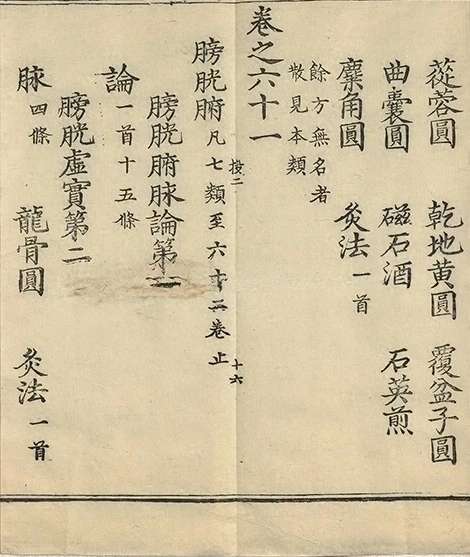 蓯蓉圓 乾地黄圓 覆盆子圓
曲囊圓 磁石酒 石英煎
麋角圓 灸法一首
餘方無名者
散見本類
卷之六十一
按二
十六
膀胱腑凡七類至六十二卷止
膀胱腑脉論第一
論一首十五條
膀胱虛實第二
脉四條 龍骨圓 灸法一首